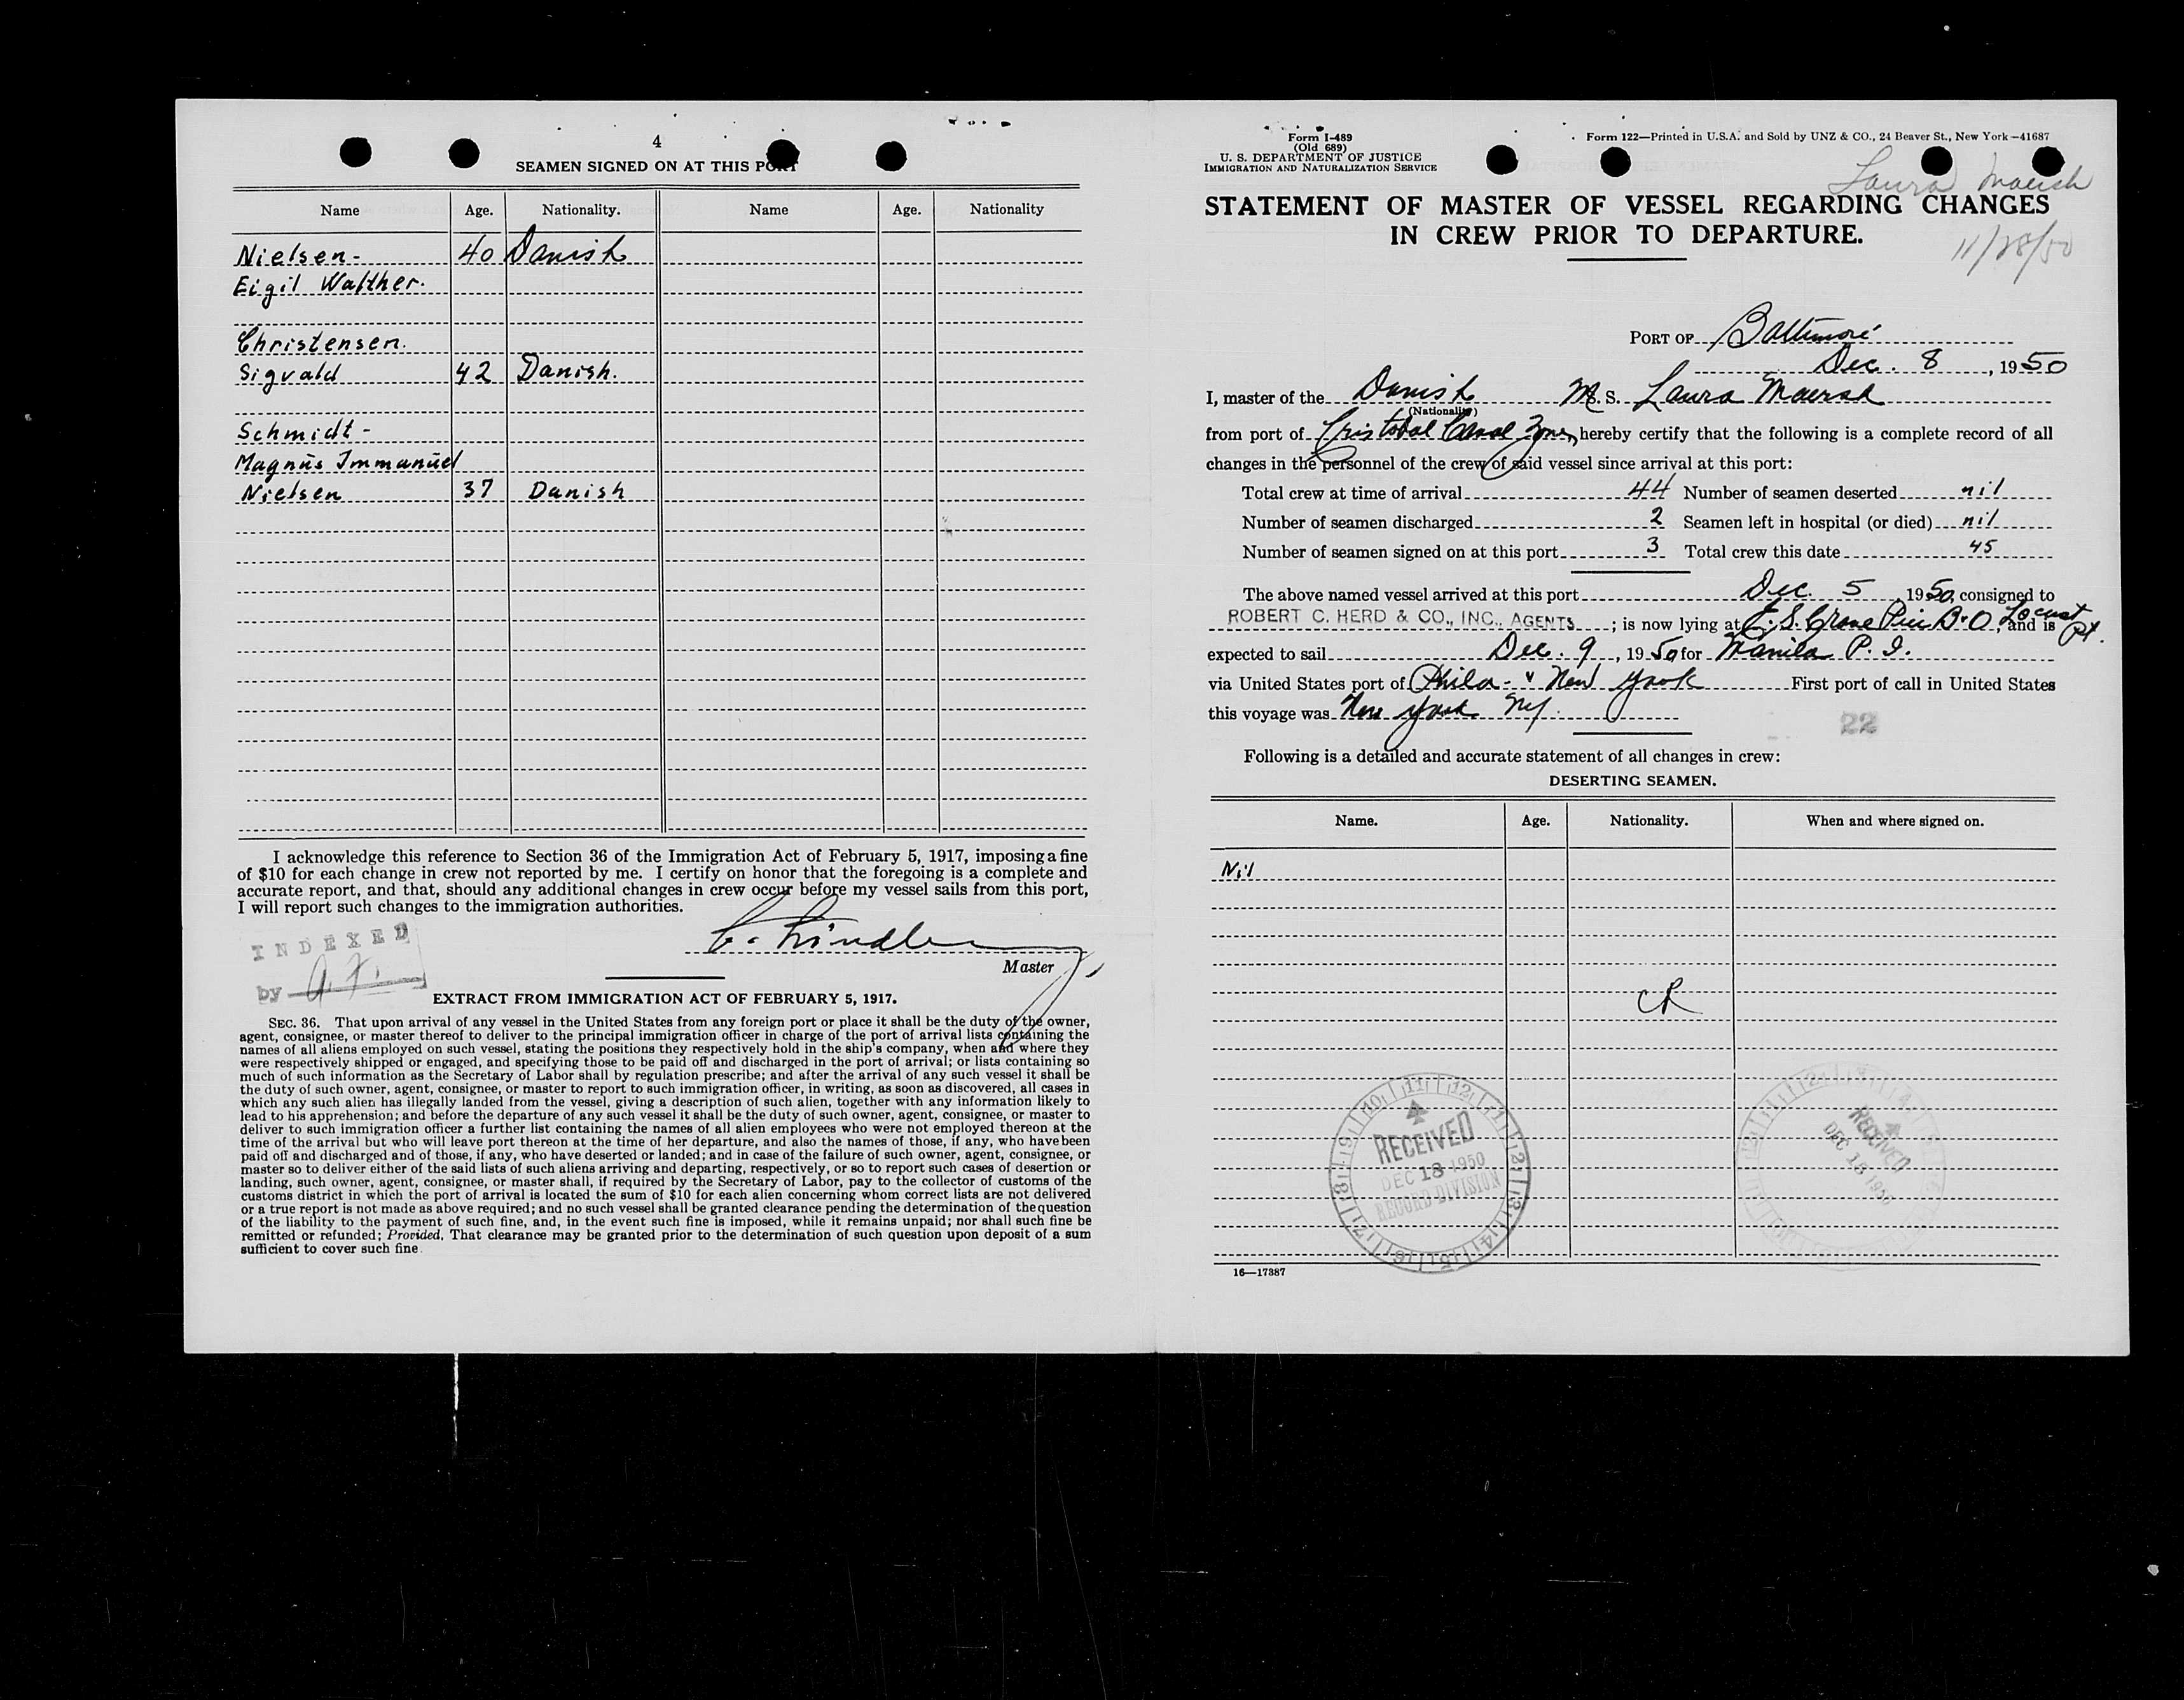 4
SEAMEN SIGNED ON AT THIS PORT
Name Age. Nationality. Name Age. Nationality
Nielsen- 40 Danish
Eigil Walther.
Christensen.
Sigvald 42 Danish.
Schmidt-
Magnus Immanuel
Nielsen 37 Danish
I acknowledge this reference to Section 36 of the Immigration Act of February 5, 1917, imposing a fine
of $10 for each change in crew not reported by me. I certify on honor that the foregoing is a complete and
accurate report, and that, should any additional changes in crew occur before my vessel sails from this port,
I will report such changes to the immigration authorities.
INDEXED
by
Master
EXTRACT FROM IMMIGRATION ACT OF FEBRUARY 5, 1917.
SEC. 36. That upon arrival of any vessel in the United States from any foreign port or place it shall be the duty of the owner,
agent, consignee, or master thereof to deliver to the principal immigration officer in charge of the port of arrival lists containing the
names of all aliens employed on such vessel, stating the positions they respectively hold in the ship's company, when and where they
were respectively shipped or engaged, and specifying those to be paid off and discharged in the port of arrival; or lists containing so
much of such information as the Secretary of Labor shall by regulation prescribe; and after the arrival of any such vessel it shall be
the duty of such owner, agent, consignee, or master to report to such immigration officer, in writing, as soon as discovered, all cases in
which any such alien has illegally landed from the vessel, giving a description of such alien, together with any information likely to
lead to his apprehension; and before the departure of any such vessel it shall be the duty of such owner, agent, consignee, or master to
deliver to such immigration officer a further list containing the names of all alien employees who were not employed thereon at the
time of the arrival but who will leave port thereon at the time of her departure, and also the names of those, if any, who have been
paid off and discharged and of those, if any, who have deserted or landed; and in case of the failure of such owner, agent, consignee, or
master so to deliver either of the said lists of such aliens arriving and departing, respectively, or so to report such cases of desertion or
landing, such owner, agent, consignee, or master shall, if required by the Secretary of Labor, pay to the collector of customs of the
customs district in which the port of arrival is located the sum of $10 for each alien concerning whom correct lists are not delivered
or a true report is not made as above required; and no such vessel shall be granted clearance pending the determination of the question
of the liability to the payment of such fine, and, in the event such fine is imposed, while it remains unpaid; nor shall such fine be
remitted or refunded; Provided, That clearance may be granted prior to the determination of such question upon deposit of a sum
sufficient to cover such fine.
Form I-489
(Old 689)
U. S. DEPARTMENT OF JUSTICE
IMMIGRATION AND NATURALIZATION SERVICE
Form 122—Printed in U.S.A. and Sold by UNZ & CO., 24 Beaver St., New York—41687
Laura Maersk
STATEMENT OF MASTER OF VESSEL REGARDING CHANGES
IN CREW PRIOR TO DEPARTURE.
11/28/50
PORT OF Baltimore
Dec. 8, 1950
I, master of the Danish M. S. Laura Maersk
(Nationality)
from port of Cristobal Canal Zone, hereby certify that the following is a complete record of all
changes in the personnel of the crew of said vessel since arrival at this port:
Total crew at time of arrival 44 Number of seamen deserted nil
Number of seamen discharged 2 Seamen left in hospital (or died) nil
Number of seamen signed on at this port 3 Total crew this date 45
The above named vessel arrived at this port Dec. 5, 1950, consigned to
ROBERT C. HERD & CO., INC., AGENTS; is now lying at E. S. Crane Pier B&O, Locust Pt. and is
expected to sail Dec. 9, 1950 for Manila P. I.
via United States port of Phila - & New York First port of call in United States
this voyage was New York NY.
22
Following is a detailed and accurate statement of all changes in crew:
DESERTING SEAMEN.
Name. Age. Nationality. When and where signed on.
Nil
CR
RECEIVED
DEC 18 1950
RECORD DIVISION
RECEIVED
DEC 15 1950
16—17387